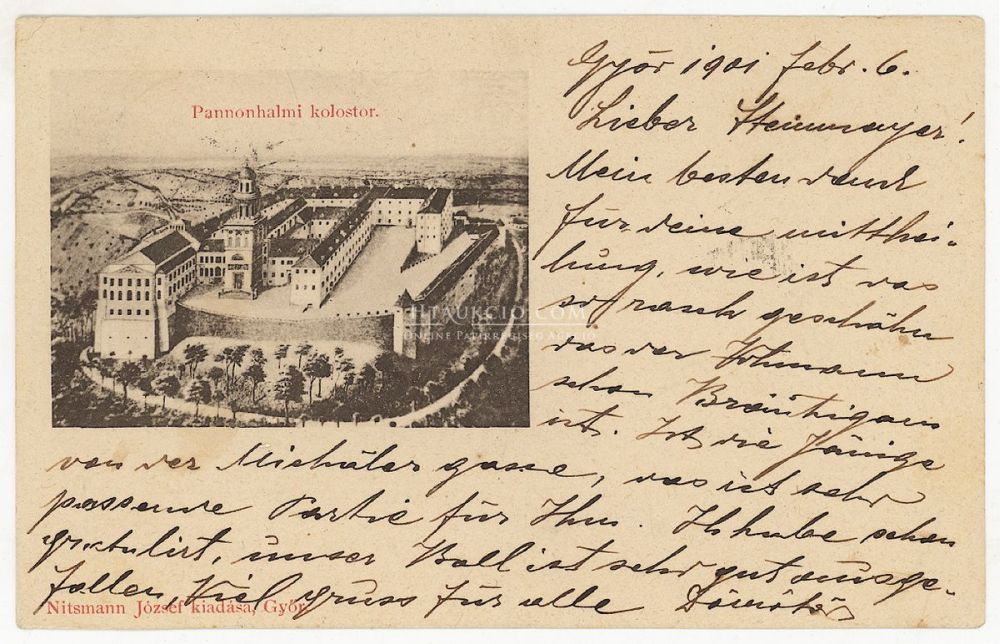 Pannonhalmi kolostor.
Győr 1901 febr. 6.
Lieber Steinmayer!
Mein besten dank
für deine mitthei-
lung, wie ist das
so rasch geschähn
das der Hohmann
schon Bräutigam
ist. Ist die Jänige
von der Michäler gasse, das ist sehr
passende Partie für Ihm. Ich habe schon
gratulirt, unser Ball ist sehr gut ausge-
fallen, Viel gruss für alle Dömötör
Nitsmann József kiadása, Győr